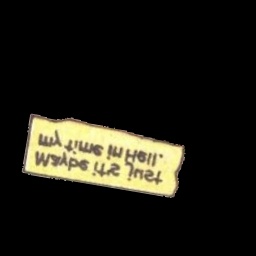 Maybe it's just
my time in Hell.